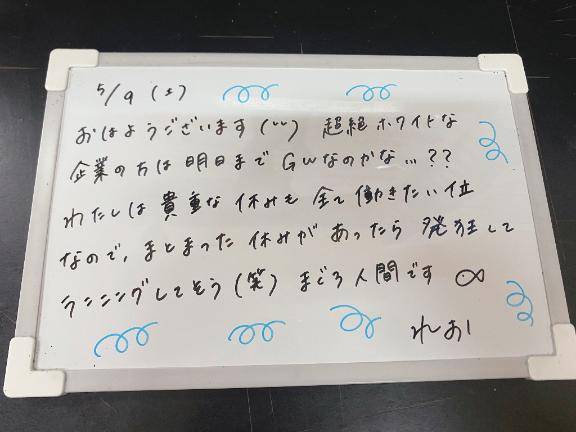 5/9 (土)
おはようございます(¨) 超絶ホワイトな
企業の方は明日までGWなのかな…??
わたしは貴重な休みも全て働きたい位
なので、まとまった休みがあったら発狂して
ランニングしてそう(笑) まぐろ人間です
れお!